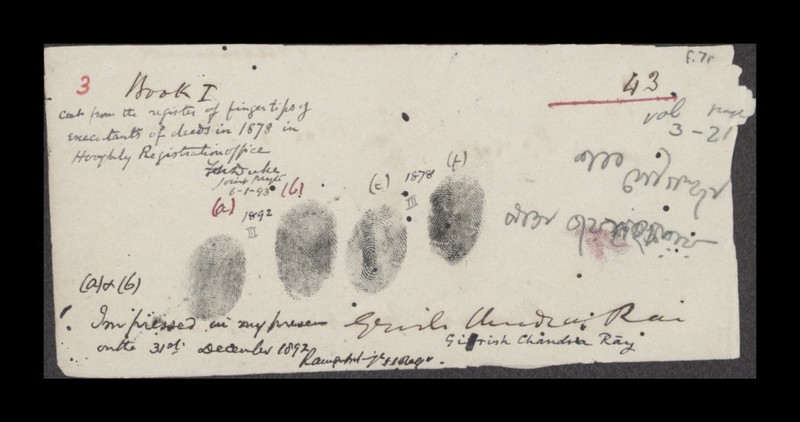 f.7r
3
Book I
43.
Cut from the register of finger tips of
executants of deeds in 1878 in
Hooghly Registration office
vol page
3-21
Duke
6-1-93
(a)
(b)
(c)
(f)
1892
III
1878
III
(a) & (b)
Impressed in my presence
on the 31st December 1892
Girish Chandra Rai
Girish Chandra Ray